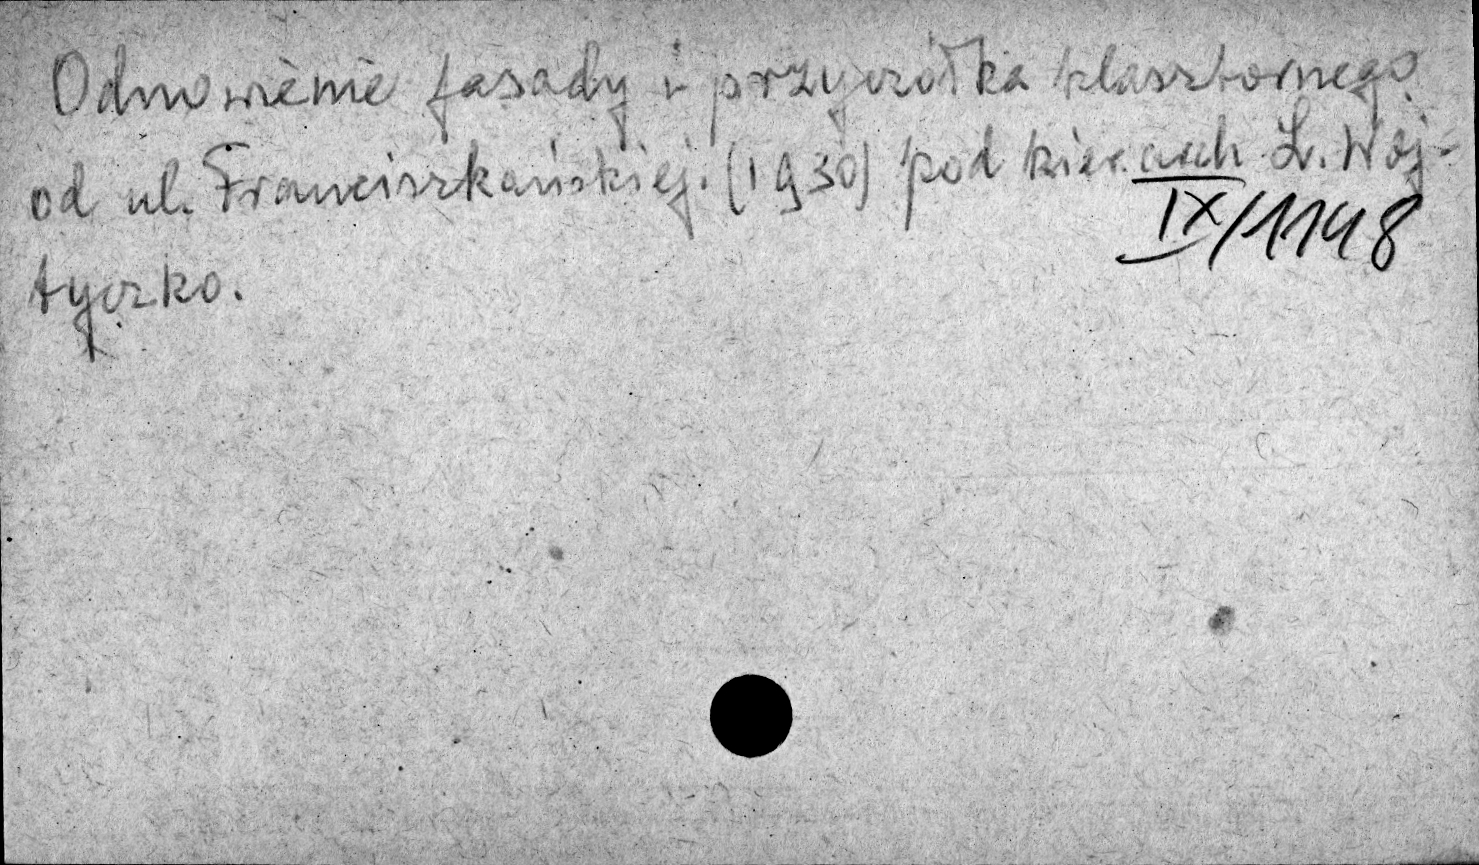 Odnowienie fasady i przyczółka klasztornego
od ul. Franciszkańskiej. (1930) pod kier. arch L. Woj-
IX/1148
tyczko.